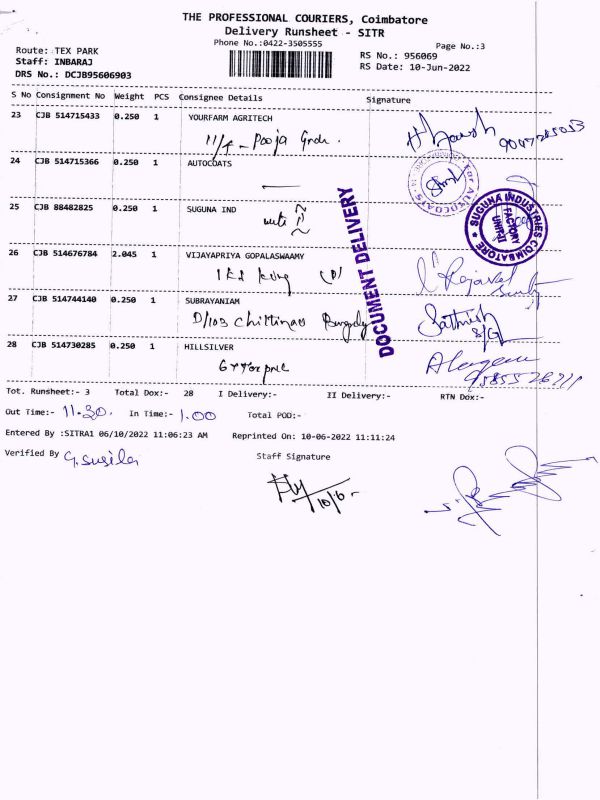 THE PROFESSIONAL COURIERS, Coimbatore
Delivery Runsheet - SITR
Phone No.:0422-3505555
Page No.:3
Route: TEX PARK
Staff: INBARAJ
DRS No.: DCJB95606903
RS No.: 956069
RS Date: 10-Jun-2022
S No Consignment No Weight PCS Consignee Details Signature
23 CJB 514715433 0.250 1 YOURFARM AGRITECH
11/4 - Pooja
24 CJB 514715366 0.250 1 AUTOCOATS
For AUTOCOATS
25 CJB 88482825 0.250 1 SUGUNA IND
SUGUNA INDUSTRIES
FACTORY
UNIT-II
COIMBATORE
DOCUMENT DELIVERY
26 CJB 514676784 2.045 1 VIJAYAPRIYA GOPALASWAAMY
27 CJB 514744140 0.250 1 SUBRAYANIAM
D/103
Sathish
S/G
28 CJB 514730285 0.250 1 HILLSILVER
Tot. Runsheet:- 3 Total Dox:- 28 I Delivery:- II Delivery:- RTN Dox:-
Out Time:- 11.30. In Time:- 1.00 Total POD:-
Entered By :SITRA1 06/10/2022 11:06:23 AM Reprinted On: 10-06-2022 11:11:24
Verified By G. Susila Staff Signature